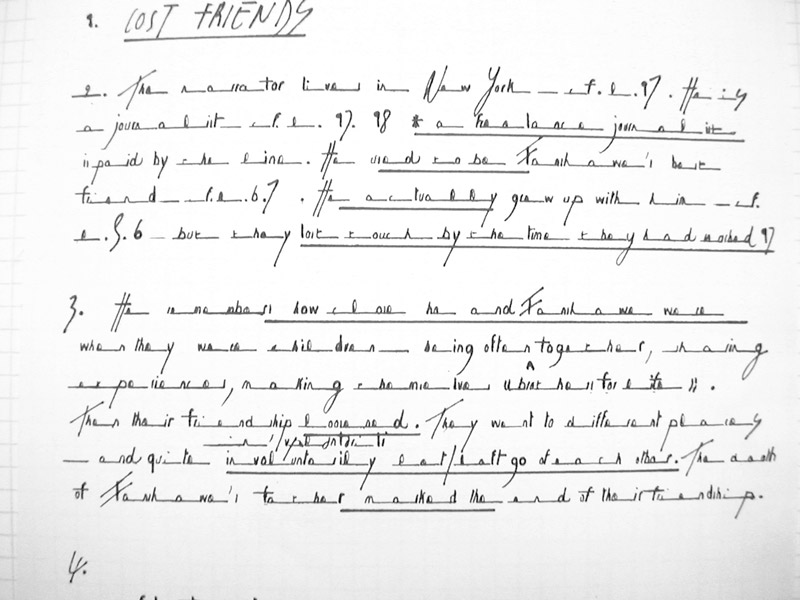 1. LOST FRIENDS
2. The narrator lives in New York – cf. l. 97. He is
a journalist – cf. l. 97. 98 * a freelance journalist
is paid by the line. He used to be Fanshawe's best
friend – cf. l. 6.7. He actually grew up with him – cf.
l. 5.6 – but they lost touch by the time they had reached 17
3. He remembers how close he and Fanshawe were
when they were children – being often together, sharing
experiences, making themselves blood brothers for life
Then their friendship loosened. They went to different places
– and quite involuntarily let/left go of each other. The death
of Fanshawe's father marked the end of their friendship.
4.